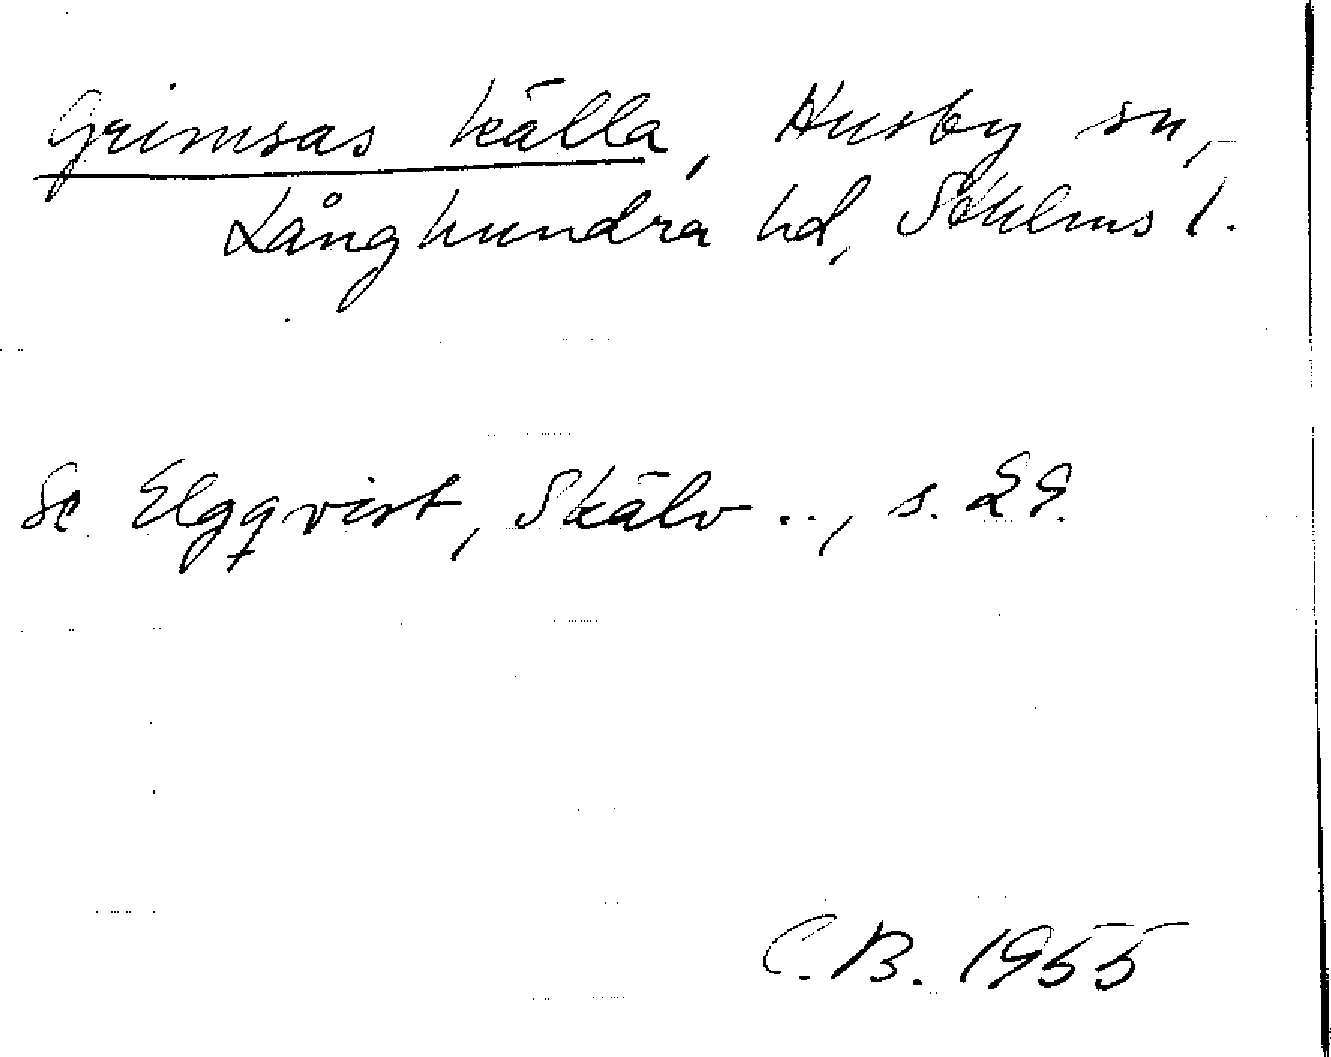 Grimsas källa, Husby sn,
Långhundra hd, Sthlms l.
Se Elgqvist, Skälv .., s. 29.
C.B. 1955